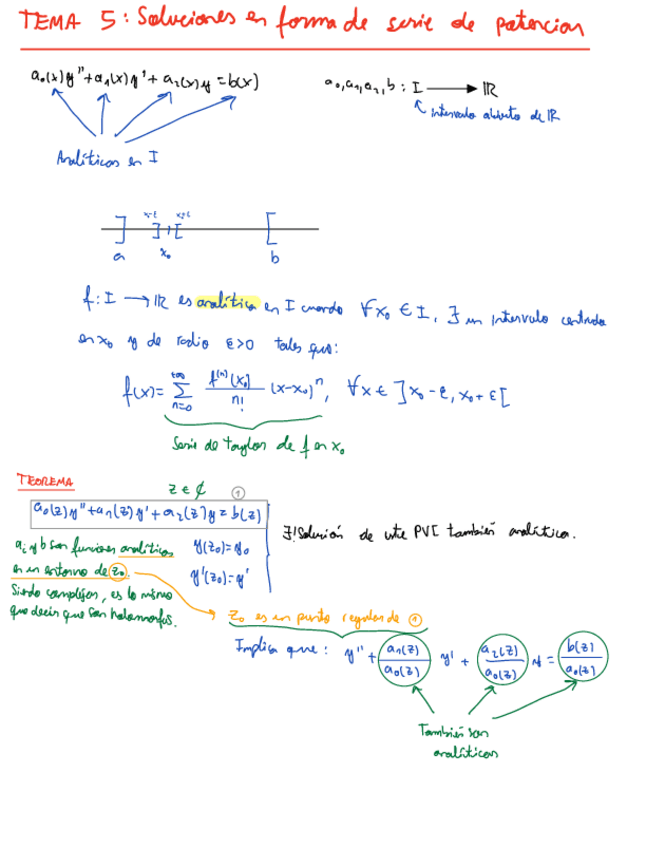 TEMA 5: Soluciones en forma de serie de potencias
a₀(x)y''+a₁(x)y'+a₂(x)y=b(x)
a₀,a₁,a₂,b : I ⟶ IR
intervalo abierto de IR
Analíticas en I
x-ε x+ε
a x₀ b
f: I → IR es analítica en I cuando ∀x₀ ∈ I, ∃ un intervalo centrado
en x₀ y de radio ε>0 tales que:
f(x)= ∑_{n=0}^{+∞} f⁽ⁿ⁾(x₀)/n! (x-x₀)ⁿ, ∀x ∈ ]x₀-ε, x₀+ε[
Serie de taylor de f en x₀
TEOREMA
z ∈ ₵ ①
a₀(z)y''+a₁(z)y'+a₂(z)y=b(z)
y(z₀)=y₀
y'(z₀)=y'
∃! Solución de este PVI también analítica.
aᵢ y b son funciones analíticas
en un entorno de z₀.
Siendo complejas, es lo mismo
que decir que son holomorfas.
z₀ es un punto regular de ①
Implica que: y'' + a₁(z)/a₀(z) y' + a₂(z)/a₀(z) y = b(z)/a₀(z)
También son
analíticas